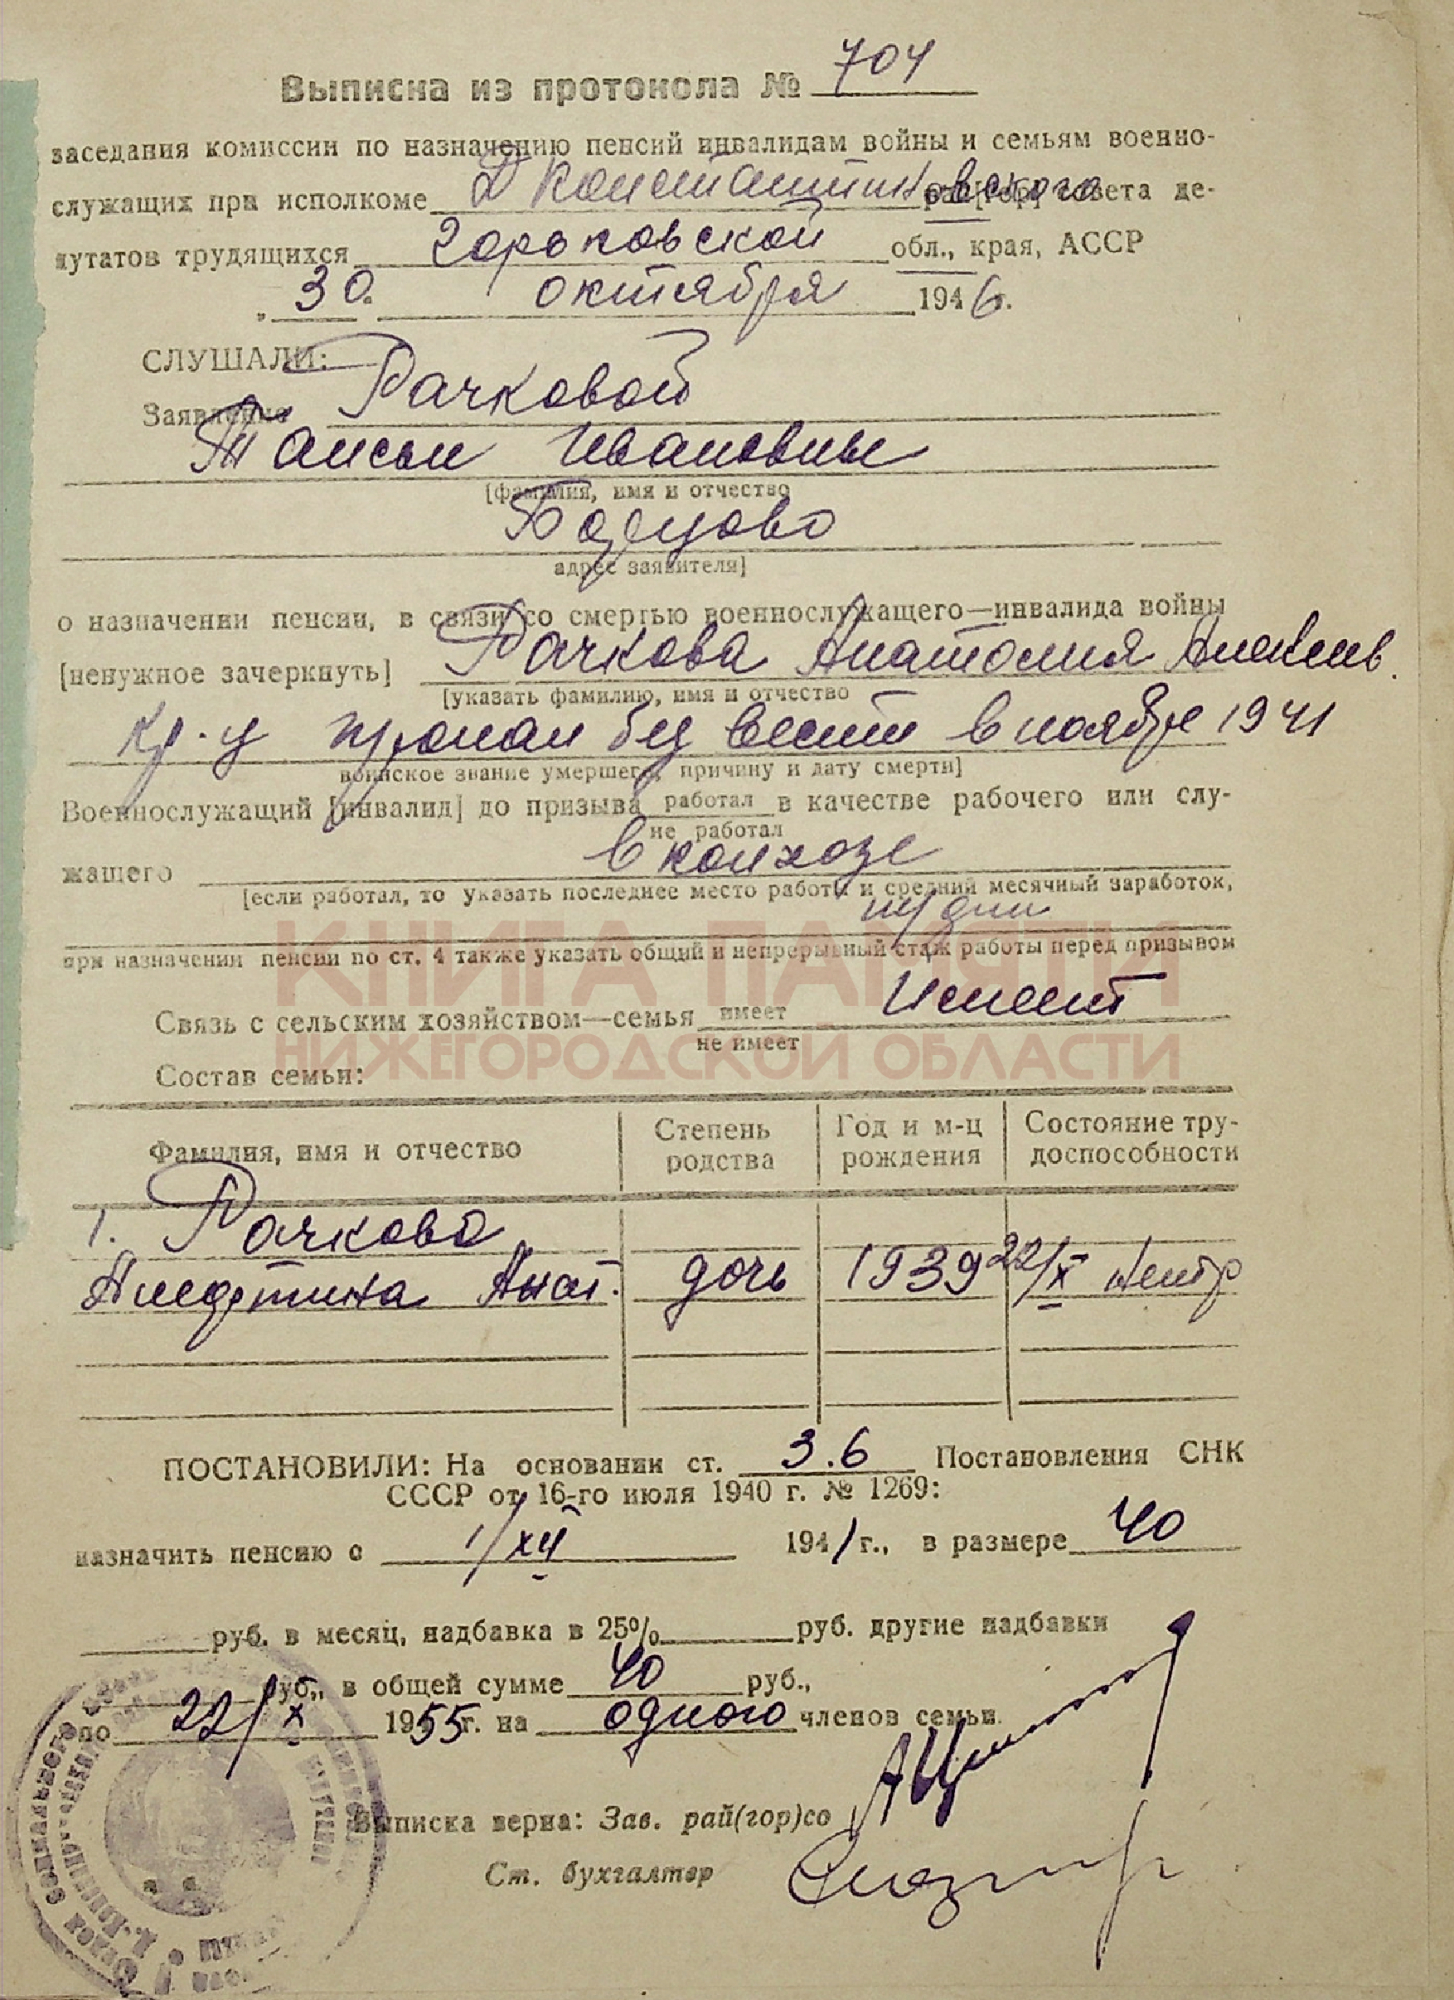 Выписка из протокола № 704
заседания комиссии по назначению пенсий инвалидам войны и семьям военно-
служащих при исполкоме Д Константиновского рай[гор] совета де-
путатов трудящихся Горьковской обл., края, АССР
„ 30 " октября 1946 г.
СЛУШАЛИ:
Заявление Рачковой
Таисьи Ивановны
[фамилия, имя и отчество
адрес заявителя]
о назначении пенсии, в связи со смертью военнослужащего—инвалида войны
[ненужное зачеркнуть] Рачкова Анатолия Алексеев.
[указать фамилию, имя и отчество
кр-ц пропал без вести в ноябре 1941
воинское звание умершего, причину и дату смерти]
Военнослужащий [инвалид] до призыва работал в качестве рабочего или слу-
не работал
жащего в колхозе
[если работал, то указать последнее место работы и средний месячный заработок,
тр/дни
при назначении пенсии по ст. 4 также указать общий и непрерывный стаж работы перед призывом
КНИГА ПАМЯТИ
НИЖЕГОРОДСКОЙ ОБЛАСТИ
Связь с сельским хозяйством—семья имеет Имеет
не имеет
Состав семьи:
Фамилия, имя и отчество Степень родства Год и м-ц рождения Состояние тру-доспособности
1. Рачкова
Алефтина Анат. дочь 1939 22/X нетр
ПОСТАНОВИЛИ: На основании ст. 3.6 Постановления СНК
СССР от 16-го июля 1940 г. № 1269:
назначить пенсию с 1/XII 1941 г., в размере 40
руб. в месяц, надбавка в 25% руб. другие надбавки
руб., в общей сумме 40 руб.,
по 22/X 1955 г. на одного членов семьи
Выписка верна: Зав. рай(гор)со
Ст. бухгалтер